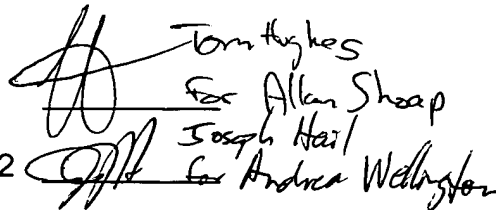 Tom Hughes
for Allan Shoap
Joseph Hail
2 for Andrea Wellington